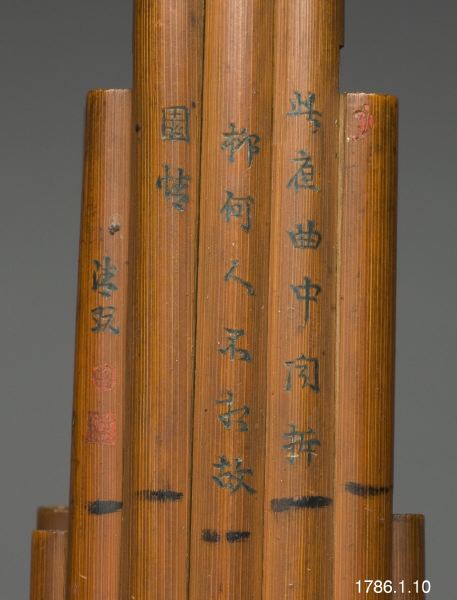 此夜曲中闻折
柳何人不起故
園情
清玩
1786.1.10